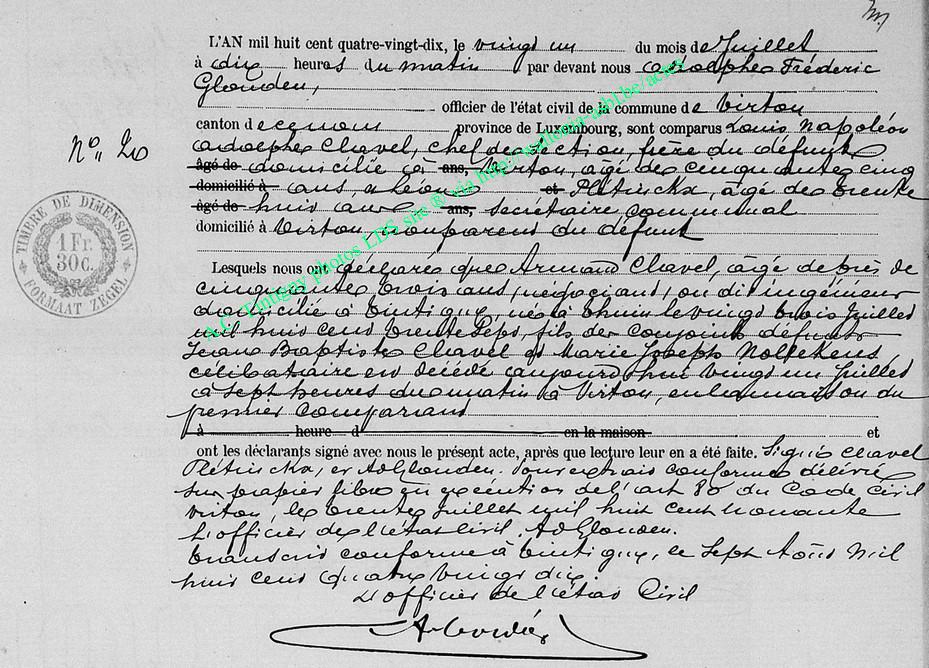 L'AN mil huit cent quatre-vingt-dix, le vingt un du mois de Juillet
à dix heures du matin par devant nous Adolphe Fréderic
Glouden,
officier de l'état civil de la commune de Virton
canton d province de Luxembourg, sont comparus Louis Napoléon
Adolphe Chavel, chef de section, frère du défunt
âgé de domicilié à ans, Virton, âgé de cinquante cinq
domicilié à ans et Pletinckx, âgé de trente
âgé de huit ans ans, secrétaire communal
domicilié à Virton, non parent du défunt
N° 20
TIMBRE DE DIMENSION
1 Fr.
30 c.
FORMAAT ZEGEL
Lesquels nous ont déclaré que Armand Chavel, âgé de près de
cinquante trois ans, négociant, ou dit ingénieur
domicilié à Tintigny, né à le vingt trois Juillet
mil huit cent trente sept, fils de conjoints défunts
Jean Baptiste Chavel et Marie Joseph Nollekens
célibataire est décédé aujourd'hui vingt un Juillet
à sept heures du matin à Virton, en la maison du
premier comparant
à heure d en la maison et
ont les déclarants signé avec nous le présent acte, après que lecture leur en a été faite. Signé Chavel
Pletinckx, et Ad Glouden. Pour extrait conforme délivré
sur papier libre en exécution de l'art 80 du Code Civil
Virton, le trente Juillet mil huit cent nonante
L'officier de l'état Civil. Ad Glouden.
Transcrit conforme à Tintigny, le sept Août Mil
huit cent quatre vingt dix.
L'officier de l'état Civil
A.C. Tintigny photos LDS site ® via http://wallonia-asbl.be/actes